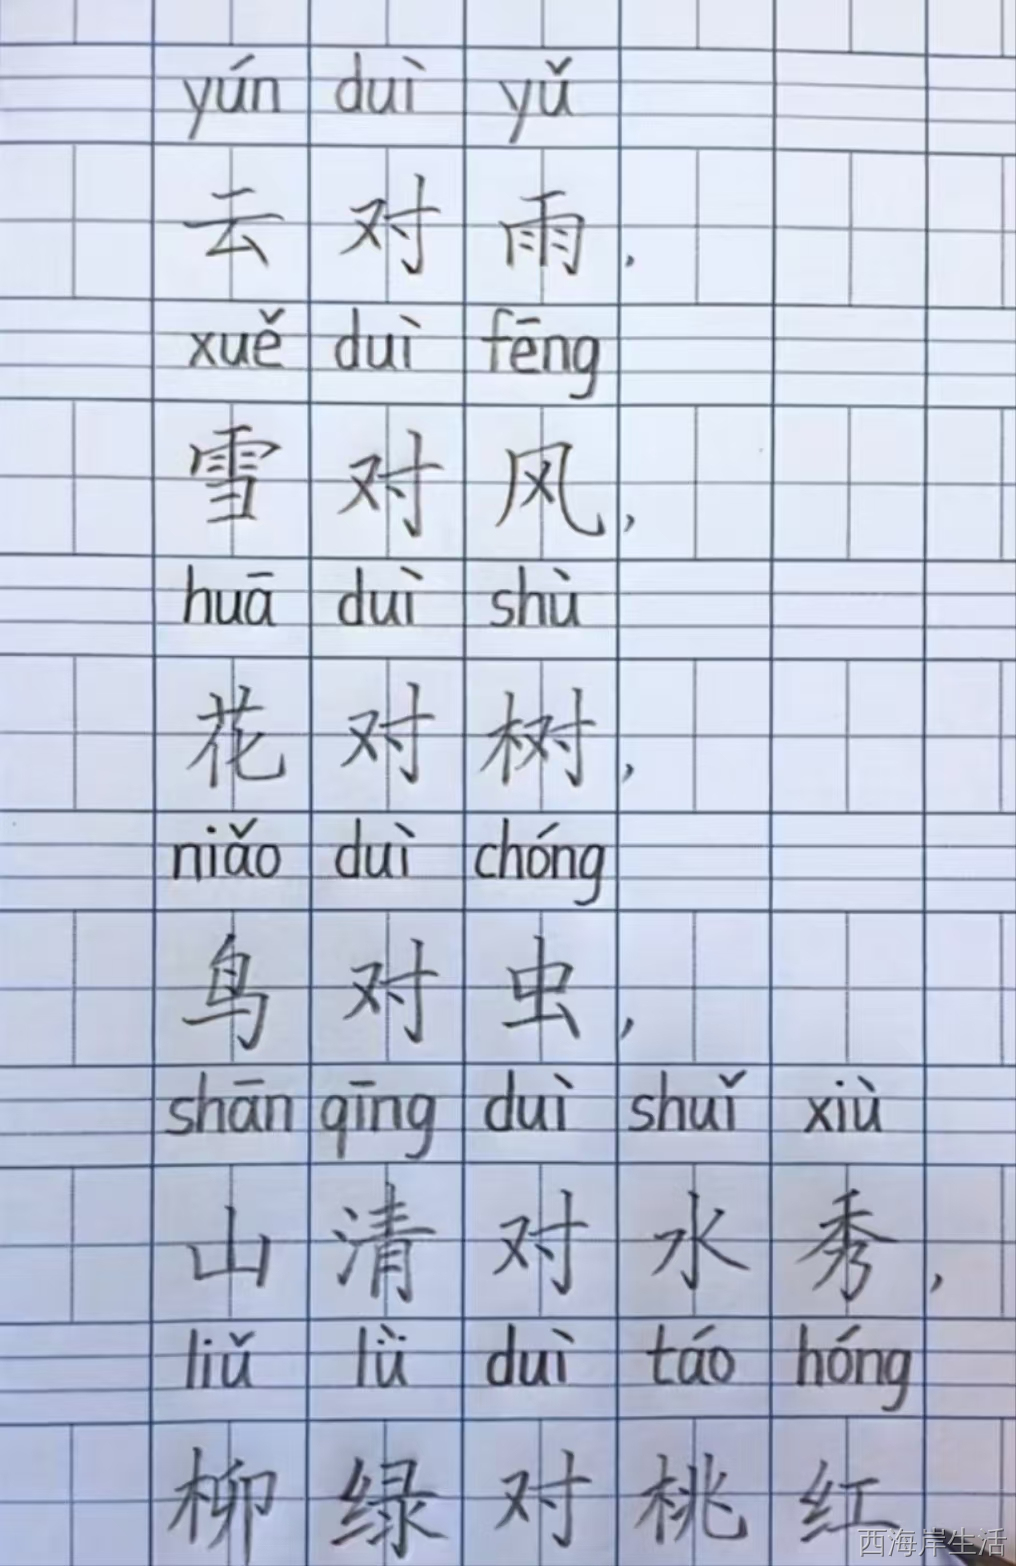 yún duì yǔ
云对雨，
xuě duì fēng
雪对风，
huā duì shù
花对树，
niǎo duì chóng
鸟对虫，
shān qīng duì shuǐ xiù
山清对水秀，
liǔ lǜ duì táo hóng
柳绿对桃红
西海岸生活